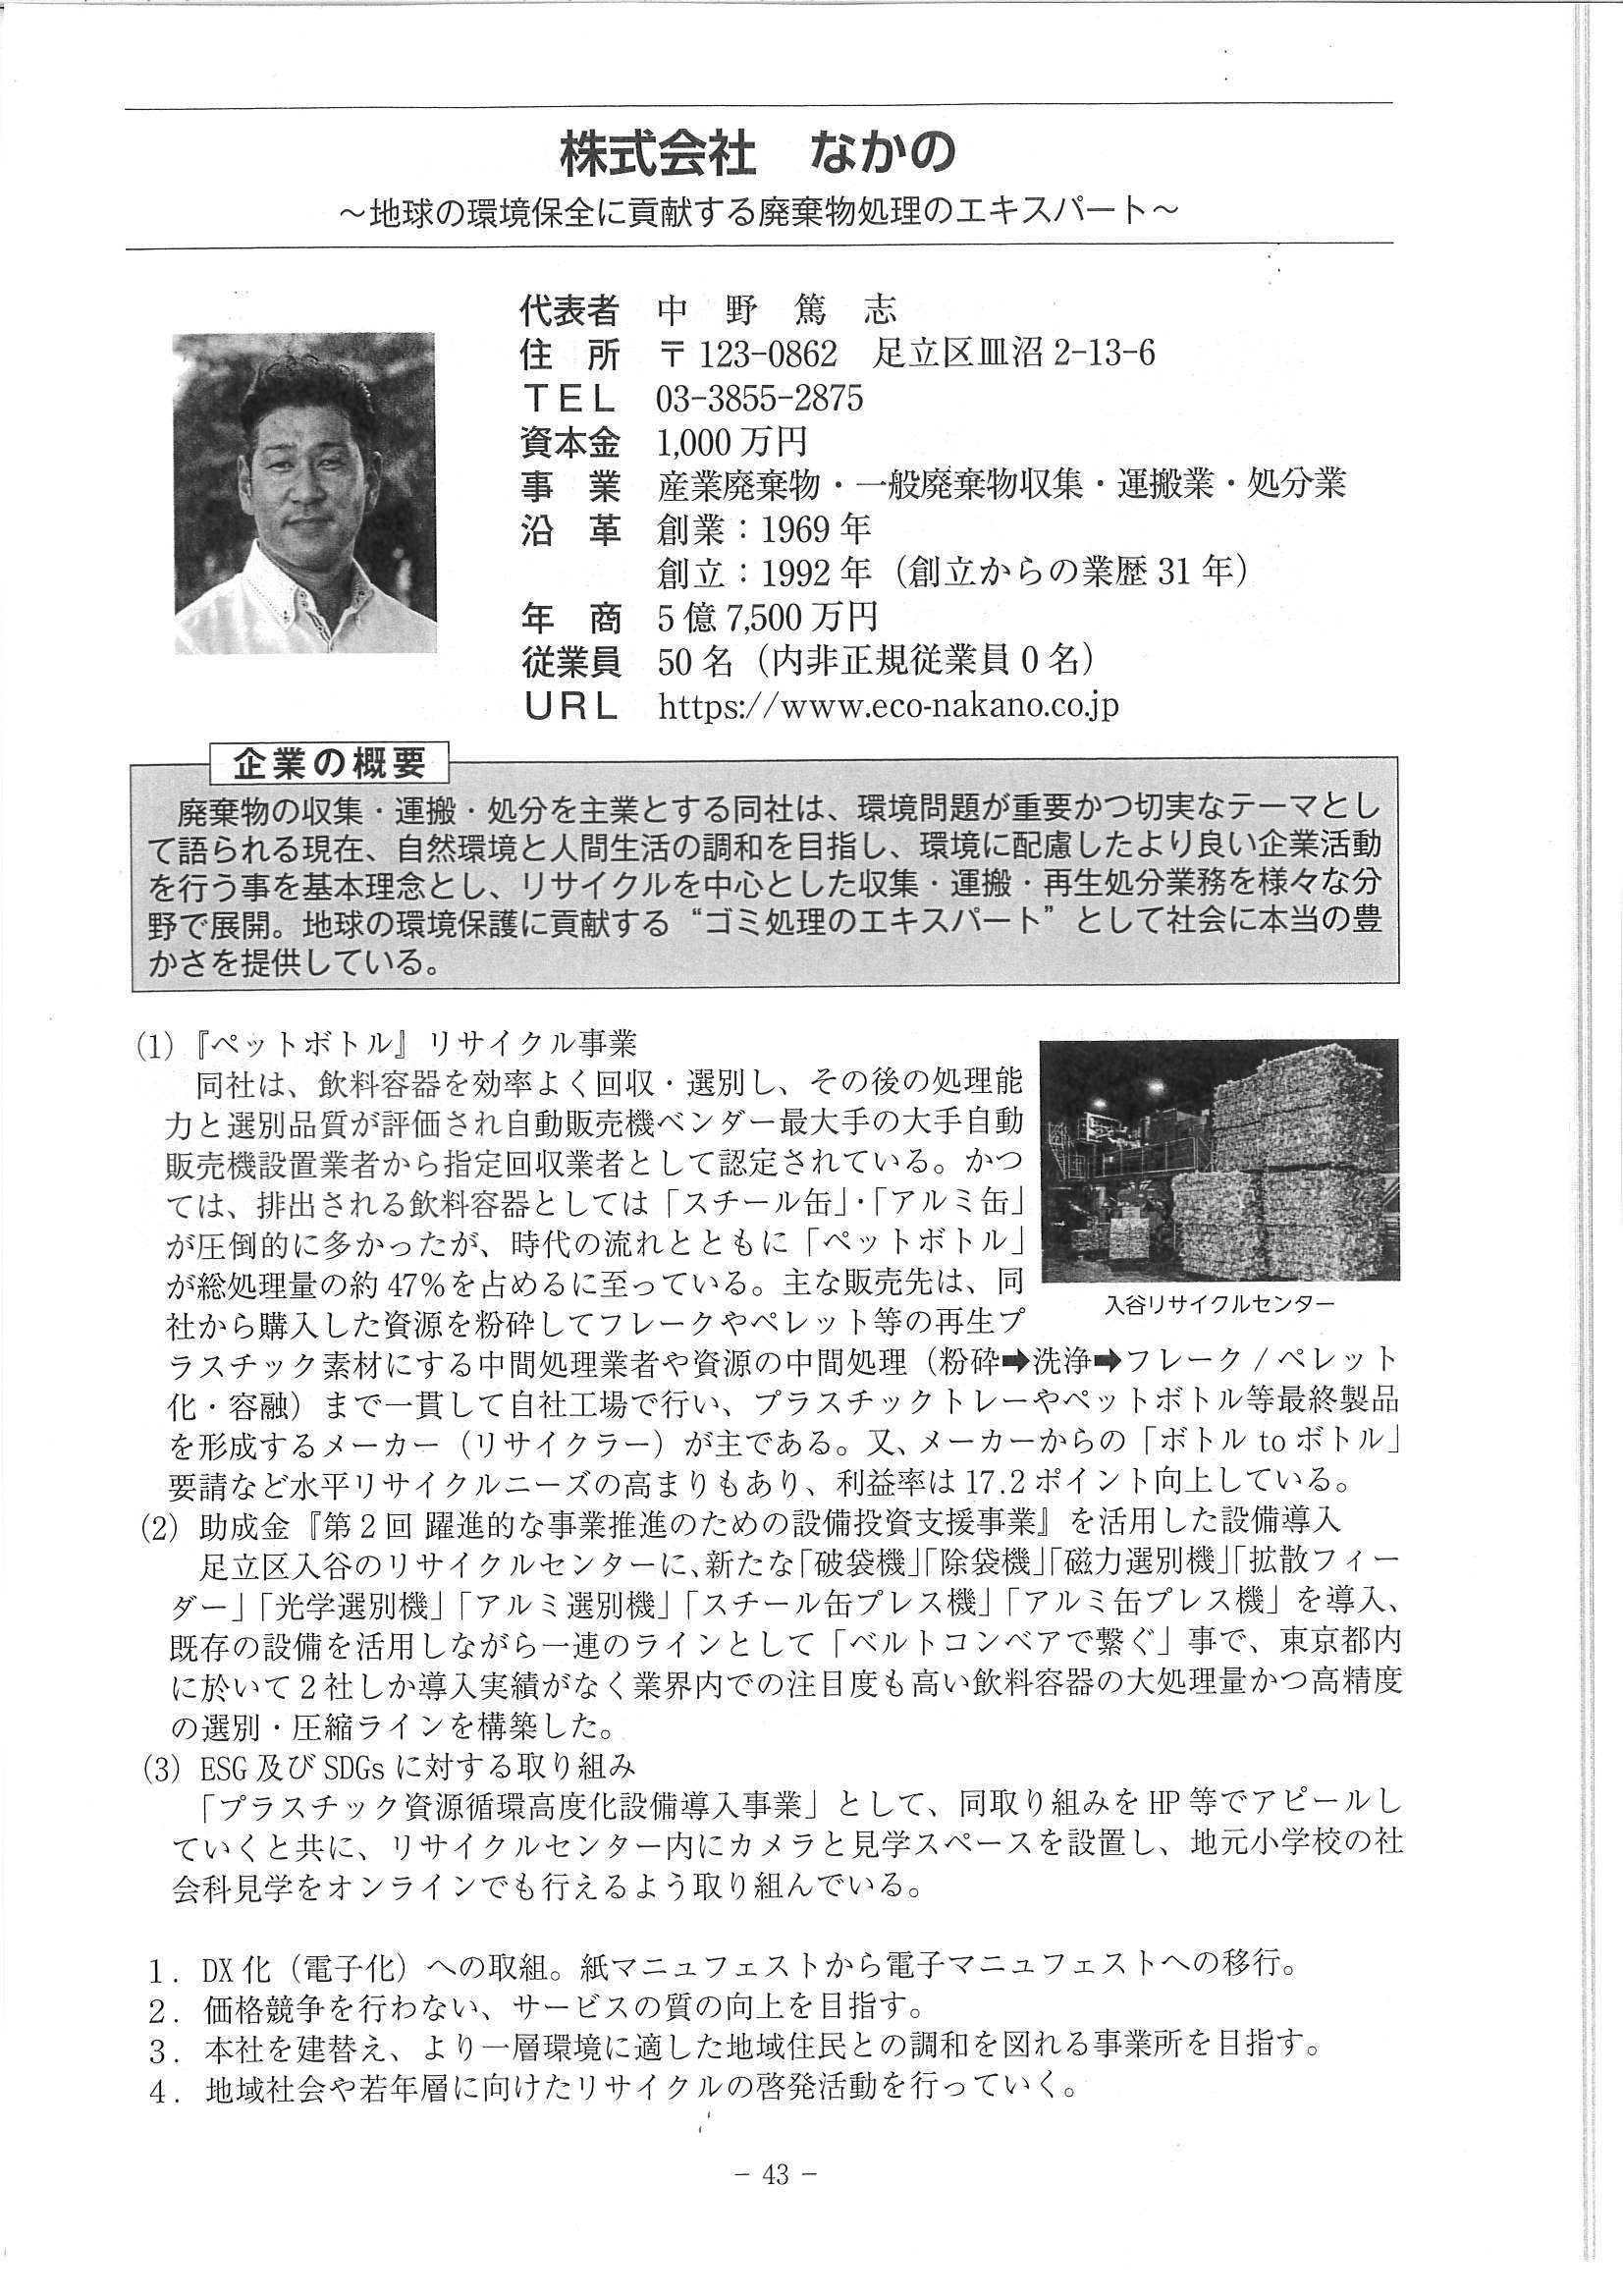 株式会社　なかの
～地球の環境保全に貢献する廃棄物処理のエキスパート～
代表者　中　野　篤　志
住　所　〒123-0862　足立区皿沼2-13-6
TEL　03-3855-2875
資本金　1,000万円
事　業　産業廃棄物・一般廃棄物収集・運搬業・処分業
沿　革　創業：1969年
創立：1992年（創立からの業歴31年）
年　商　5億7,500万円
従業員　50名（内非正規従業員0名）
URL　https://www.eco-nakano.co.jp
企業の概要
廃棄物の収集・運搬・処分を主業とする同社は、環境問題が重要かつ切実なテーマとし
て語られる現在、自然環境と人間生活の調和を目指し、環境に配慮したより良い企業活動
を行う事を基本理念とし、リサイクルを中心とした収集・運搬・再生処分業務を様々な分
野で展開。地球の環境保護に貢献する“ゴミ処理のエキスパート”として社会に本当の豊
かさを提供している。
(1)『ペットボトル』リサイクル事業
同社は、飲料容器を効率よく回収・選別し、その後の処理能
力と選別品質が評価され自動販売機ベンダー最大手の大手自動
販売機設置業者から指定回収業者として認定されている。かつ
ては、排出される飲料容器としては「スチール缶」・「アルミ缶」
が圧倒的に多かったが、時代の流れとともに「ペットボトル」
が総処理量の約47%を占めるに至っている。主な販売先は、同
社から購入した資源を粉砕してフレークやペレット等の再生プ
入谷リサイクルセンター
ラスチック素材にする中間処理業者や資源の中間処理（粉砕➡洗浄➡フレーク/ペレット
化・容融）まで一貫して自社工場で行い、プラスチックトレーやペットボトル等最終製品
を形成するメーカー（リサイクラー）が主である。又、メーカーからの「ボトルtoボトル」
要請など水平リサイクルニーズの高まりもあり、利益率は17.2ポイント向上している。
(2) 助成金『第2回 躍進的な事業推進のための設備投資支援事業』を活用した設備導入
足立区入谷のリサイクルセンターに、新たな「破袋機」「除袋機」「磁力選別機」「拡散フィー
ダー」「光学選別機」「アルミ選別機」「スチール缶プレス機」「アルミ缶プレス機」を導入、
既存の設備を活用しながら一連のラインとして「ベルトコンベアで繋ぐ」事で、東京都内
に於いて2社しか導入実績がなく業界内での注目度も高い飲料容器の大処理量かつ高精度
の選別・圧縮ラインを構築した。
(3) ESG及びSDGsに対する取り組み
「プラスチック資源循環高度化設備導入事業」として、同取り組みをHP等でアピールし
ていくと共に、リサイクルセンター内にカメラと見学スペースを設置し、地元小学校の社
会科見学をオンラインでも行えるよう取り組んでいる。
1．DX化（電子化）への取組。紙マニュフェストから電子マニュフェストへの移行。
2．価格競争を行わない、サービスの質の向上を目指す。
3．本社を建替え、より一層環境に適した地域住民との調和を図れる事業所を目指す。
4．地域社会や若年層に向けたリサイクルの啓発活動を行っていく。
- 43 -